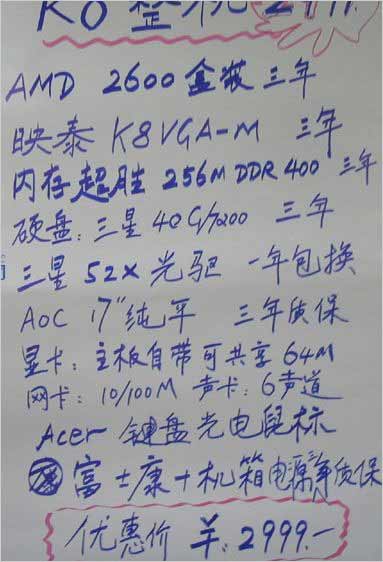 K8 整机 2999.
AMD 2600 盒装 三年
映泰 K8VGA-M 三年
内存超胜 256M DDR 400 三年
硬盘: 三星 40G/7200 三年
三星 52X 光驱 一年包换
AOC 17"纯平 三年质保
显卡: 主板自带可共享 64M
网卡: 10/100M 声卡: 6声道
Acer 键盘光电鼠标
富士康+机箱电源 年质保
优惠价 ¥: 2999.—